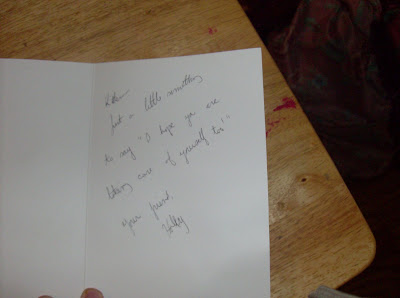 Just a little something
to say "I hope you are
taking care of yourself too!"
Your friend,